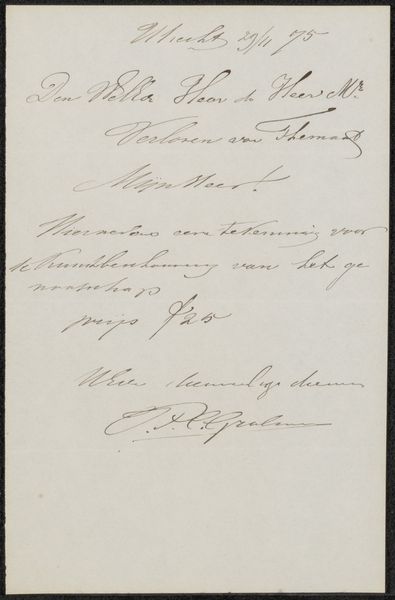 Utrecht 29/11 75
Den WelEd Heer de Heer Mr.
Verloren van Themaat
Mijn Heer!
Hiernevens eene tekening voor
de Kunstbeschouwing van het ge
nootschap
prijs f 25
UEd